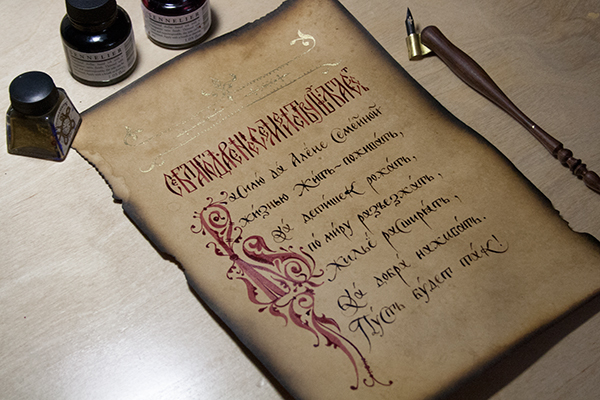 SENNELIER
SENNELIER
Василию да Алёне Семейной
жизнью жить-поживать,
Да детишек рожать,
по миру разъезжать,
Жильё расширять,
Да добра наживать.
Пусть будет так!